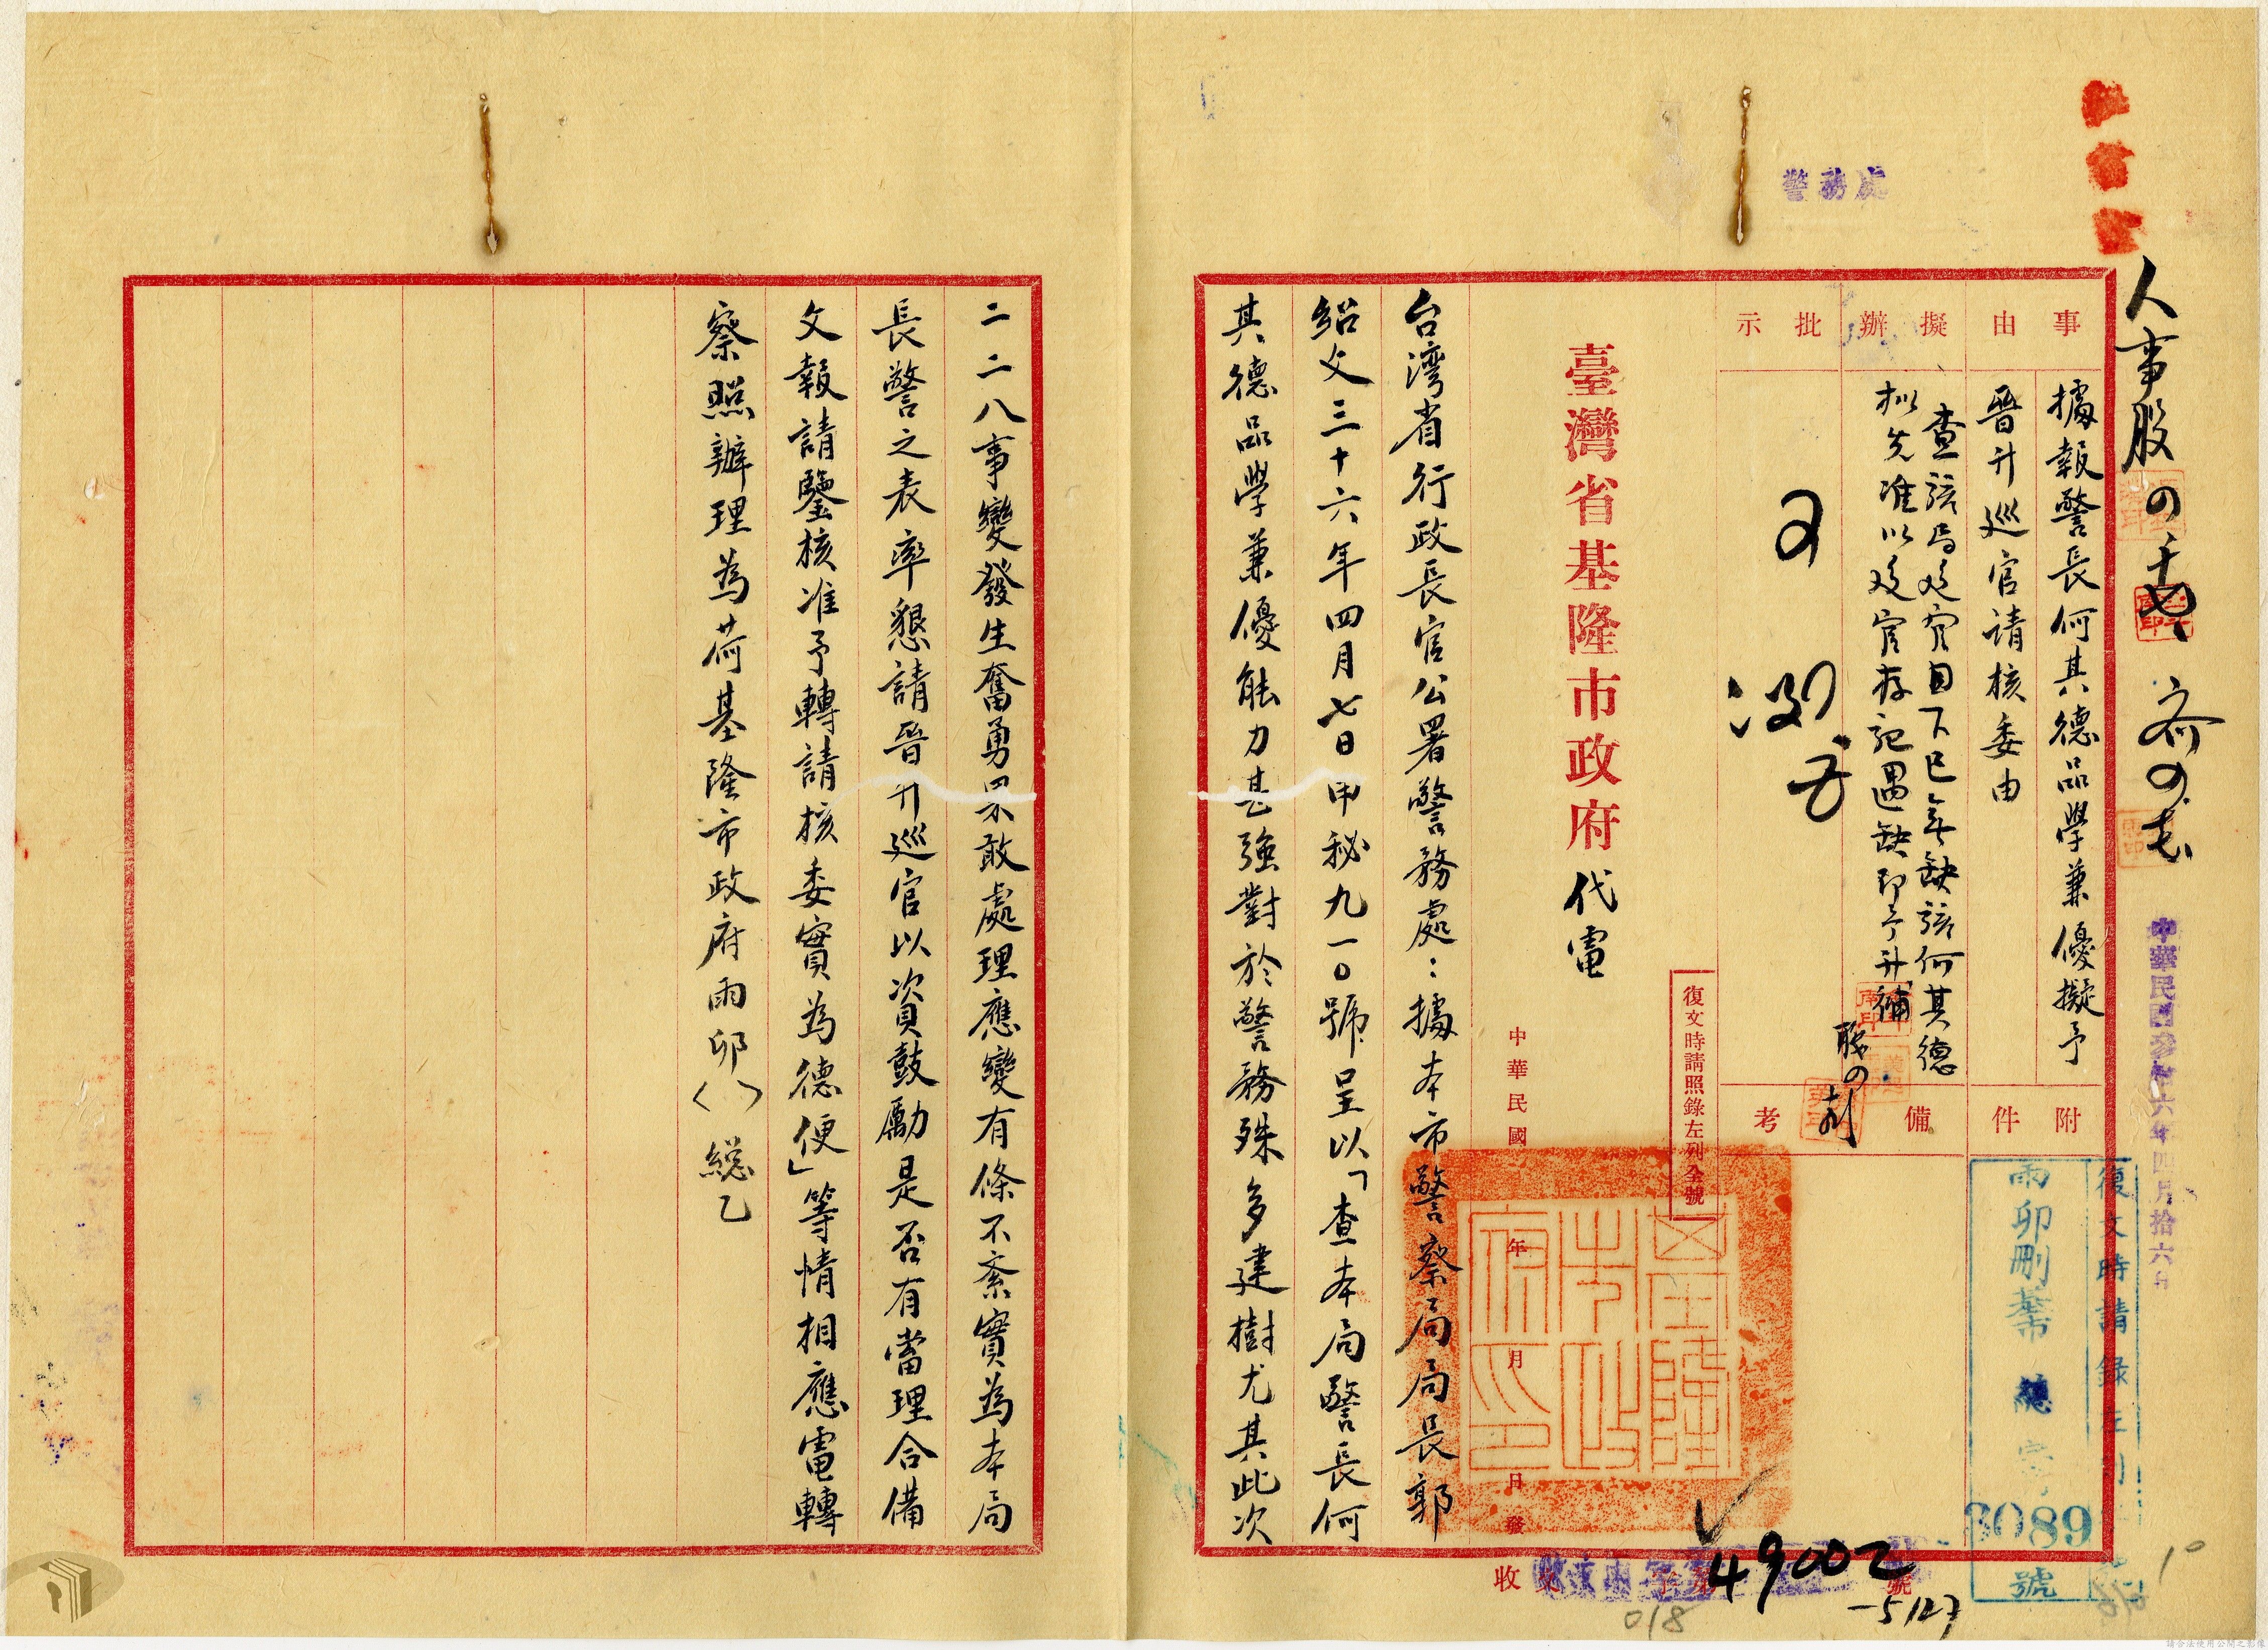 警務處
人事股
中華民國參拾六年四月拾六日
事由
據報警長何其德品學兼優擬予
晉升巡官請核委由
擬辦
查該局巡官目下已無缺該何其德
擬先准以巡官存記遇缺即予升補
批示
附件
備考
復文時請照錄左列全號
復文時請錄左列
雨卯刪基 總字
8089
號
臺灣省基隆市政府代電
中華民國 年 月 日發
台湾省行政長官公署警務處：據本市警察局局長郭
紹文三十六年四月七日申秘九一○號呈以「查本局警長何
其德品學兼優能力甚強對於警務殊多建樹尤其此次
二二八事變發生奮勇果敢處理應變有條不紊實為本局
長警之表率懇請晉升巡官以資鼓勵是否有當理合備
文報請鑒核准予轉請核委實為德便」等情相應電轉
察照辦理為荷基隆市政府雨卯〈 〉総乙
基隆市政府印
收 字第 號
49002
-5127
018
請合法使用公開之影像